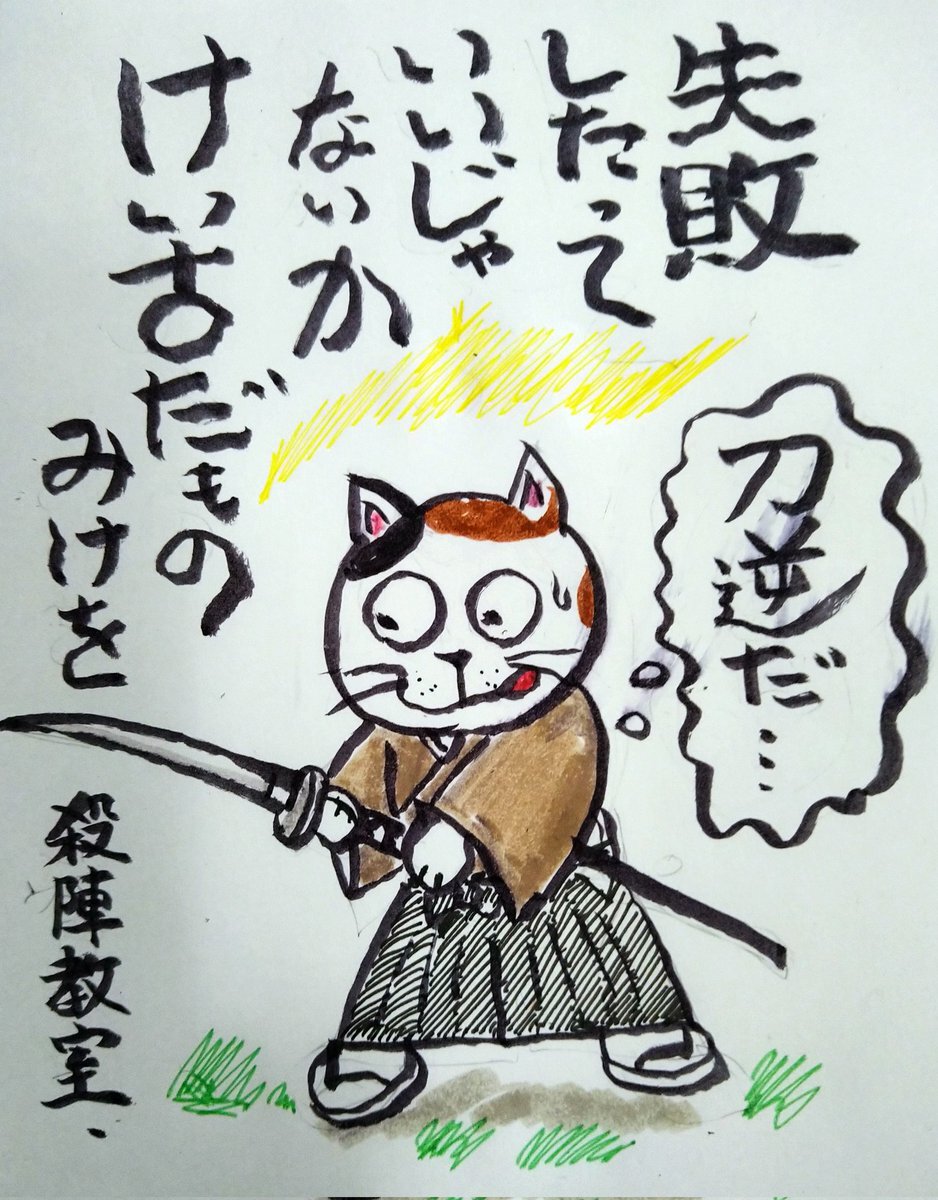 失敗
したって
いいじゃ
ないか
けい古だもの
みけを
刀逆だ…
殺陣教室.